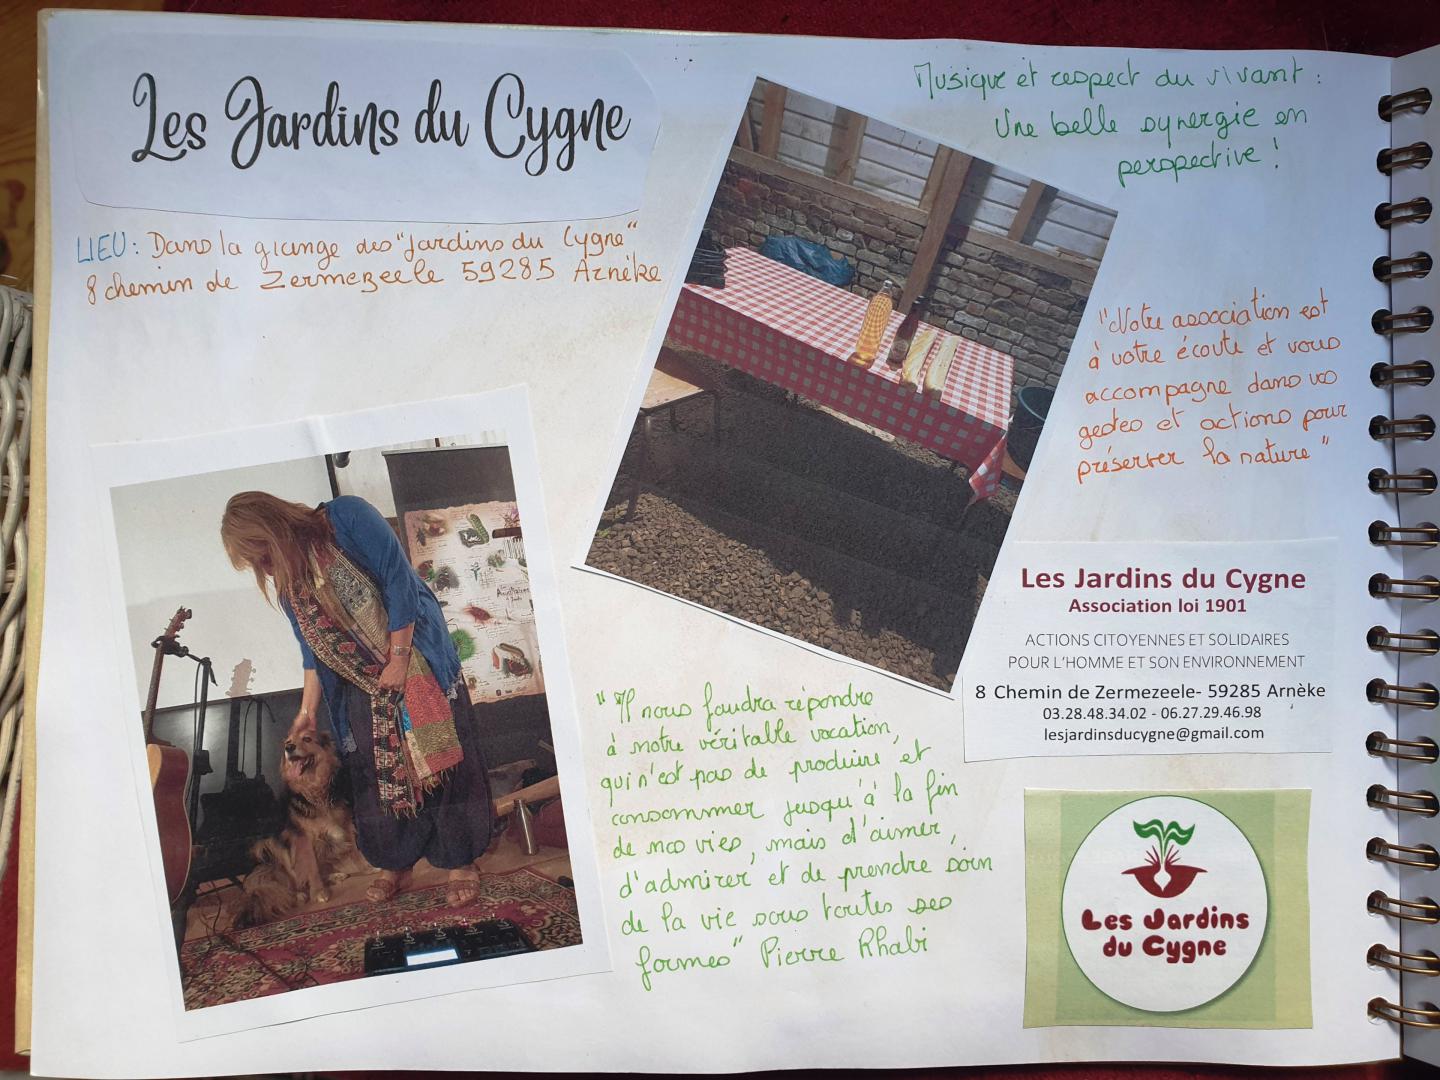 Les Jardins du Cygne
LIEU : Dans la grange des "Jardins du Cygne"
8 chemin de Zermezeele 59285 Arnèke
Musique et respect du vivant :
Une belle synergie en
perspective !
"Notre association est
à votre écoute et vous
accompagne dans vos
gestes et actions pour
préserver la nature"
"Il nous faudra répondre
à notre véritable vocation,
qui n'est pas de produire et
consommer jusqu'à la fin
de nos vies, mais d'aimer,
d'admirer et de prendre soin
de la vie sous toutes ses
formes" Pierre Rhabi
Les Jardins du Cygne
Association loi 1901
ACTIONS CITOYENNES ET SOLIDAIRES
POUR L'HOMME ET SON ENVIRONNEMENT
8 Chemin de Zermezeele- 59285 Arnèke
03.28.48.34.02 - 06.27.29.46.98
lesjardinsducygne@gmail.com
Les Jardins
du Cygne